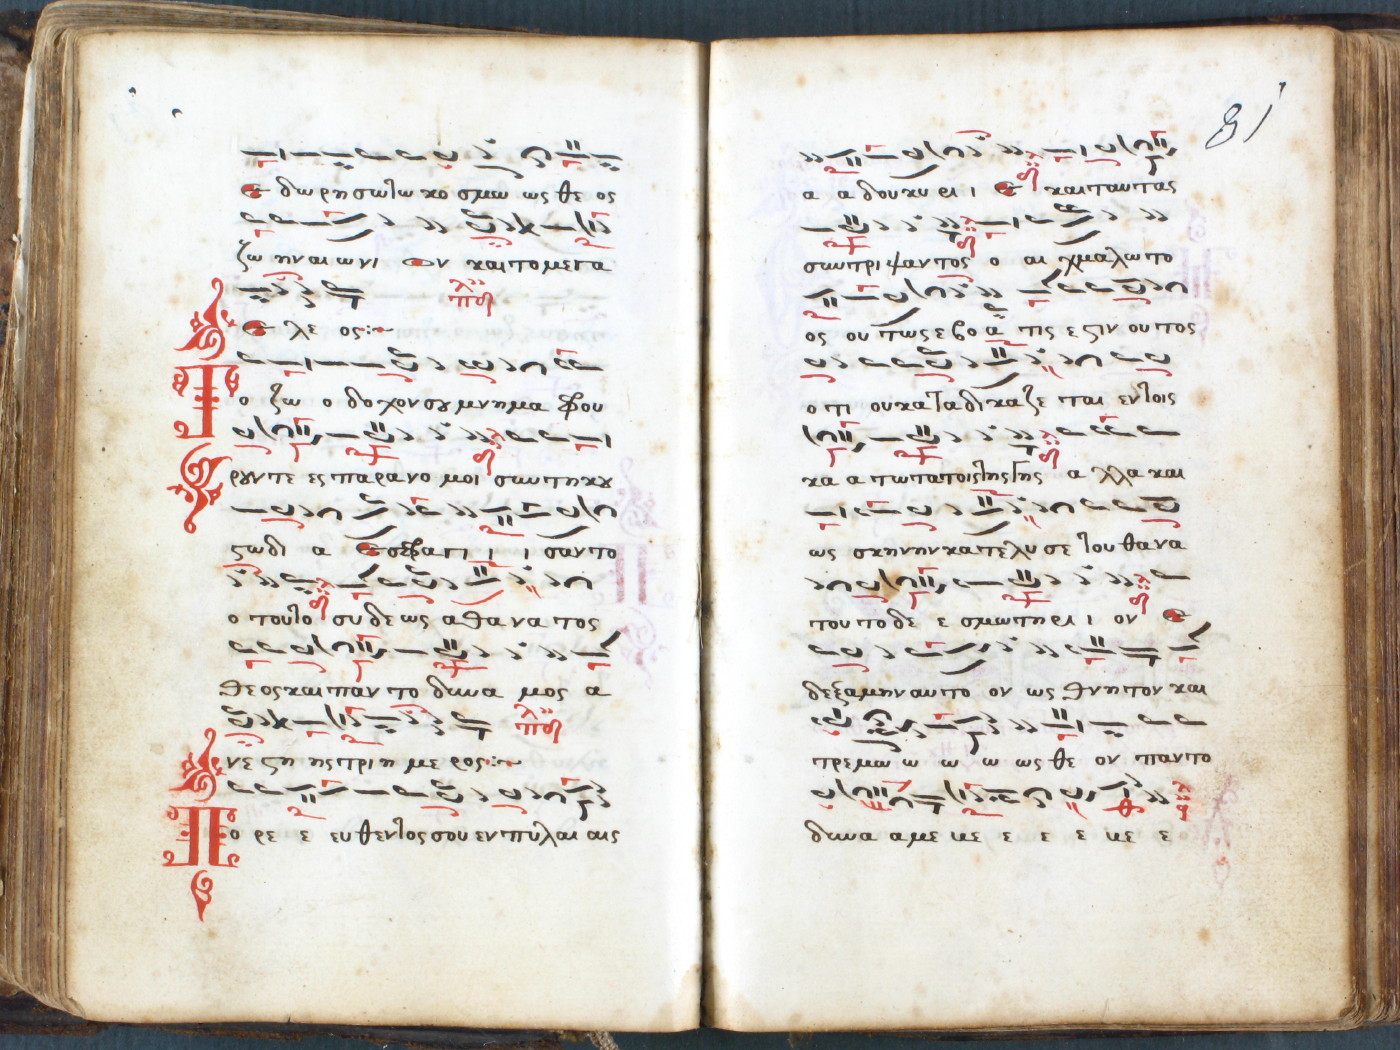 ε δωρησω τω κο σμω ως θε ος
ζω ην αιωνι ον και το μεγα
ε λε ος :~
Το ζω ο δοχον σου μνημα φρου
ρουντε ες παρανο μοι συν τη κου
στωδι α εσφραγι ι ι σαν το
ο τουτο συ δε ως αθανατος
θεος και παντο δυνα μος α
νε στη ης τριη με ρος :~
Πο ρε ε ευθεντος σου εν πυλαι αις
α α δου κυ ρι ι ε και ταυτας
συντριψαντος ο αι χμαλωτο
ος ουτως εβοα τις εστιν ουτος
οτι ου καταδικαζεται εν τοις
κα α τωτατοις της γης α λλα και
ως σκηνην κατελυσε του θανα
του το δε ε σμωτηρι ι ον ε
δεξαμην αυτο ον ως θνητον και
τρεμω ω ω ω ως θε ον παντο
δυνα αμε με ε ε ε με ε